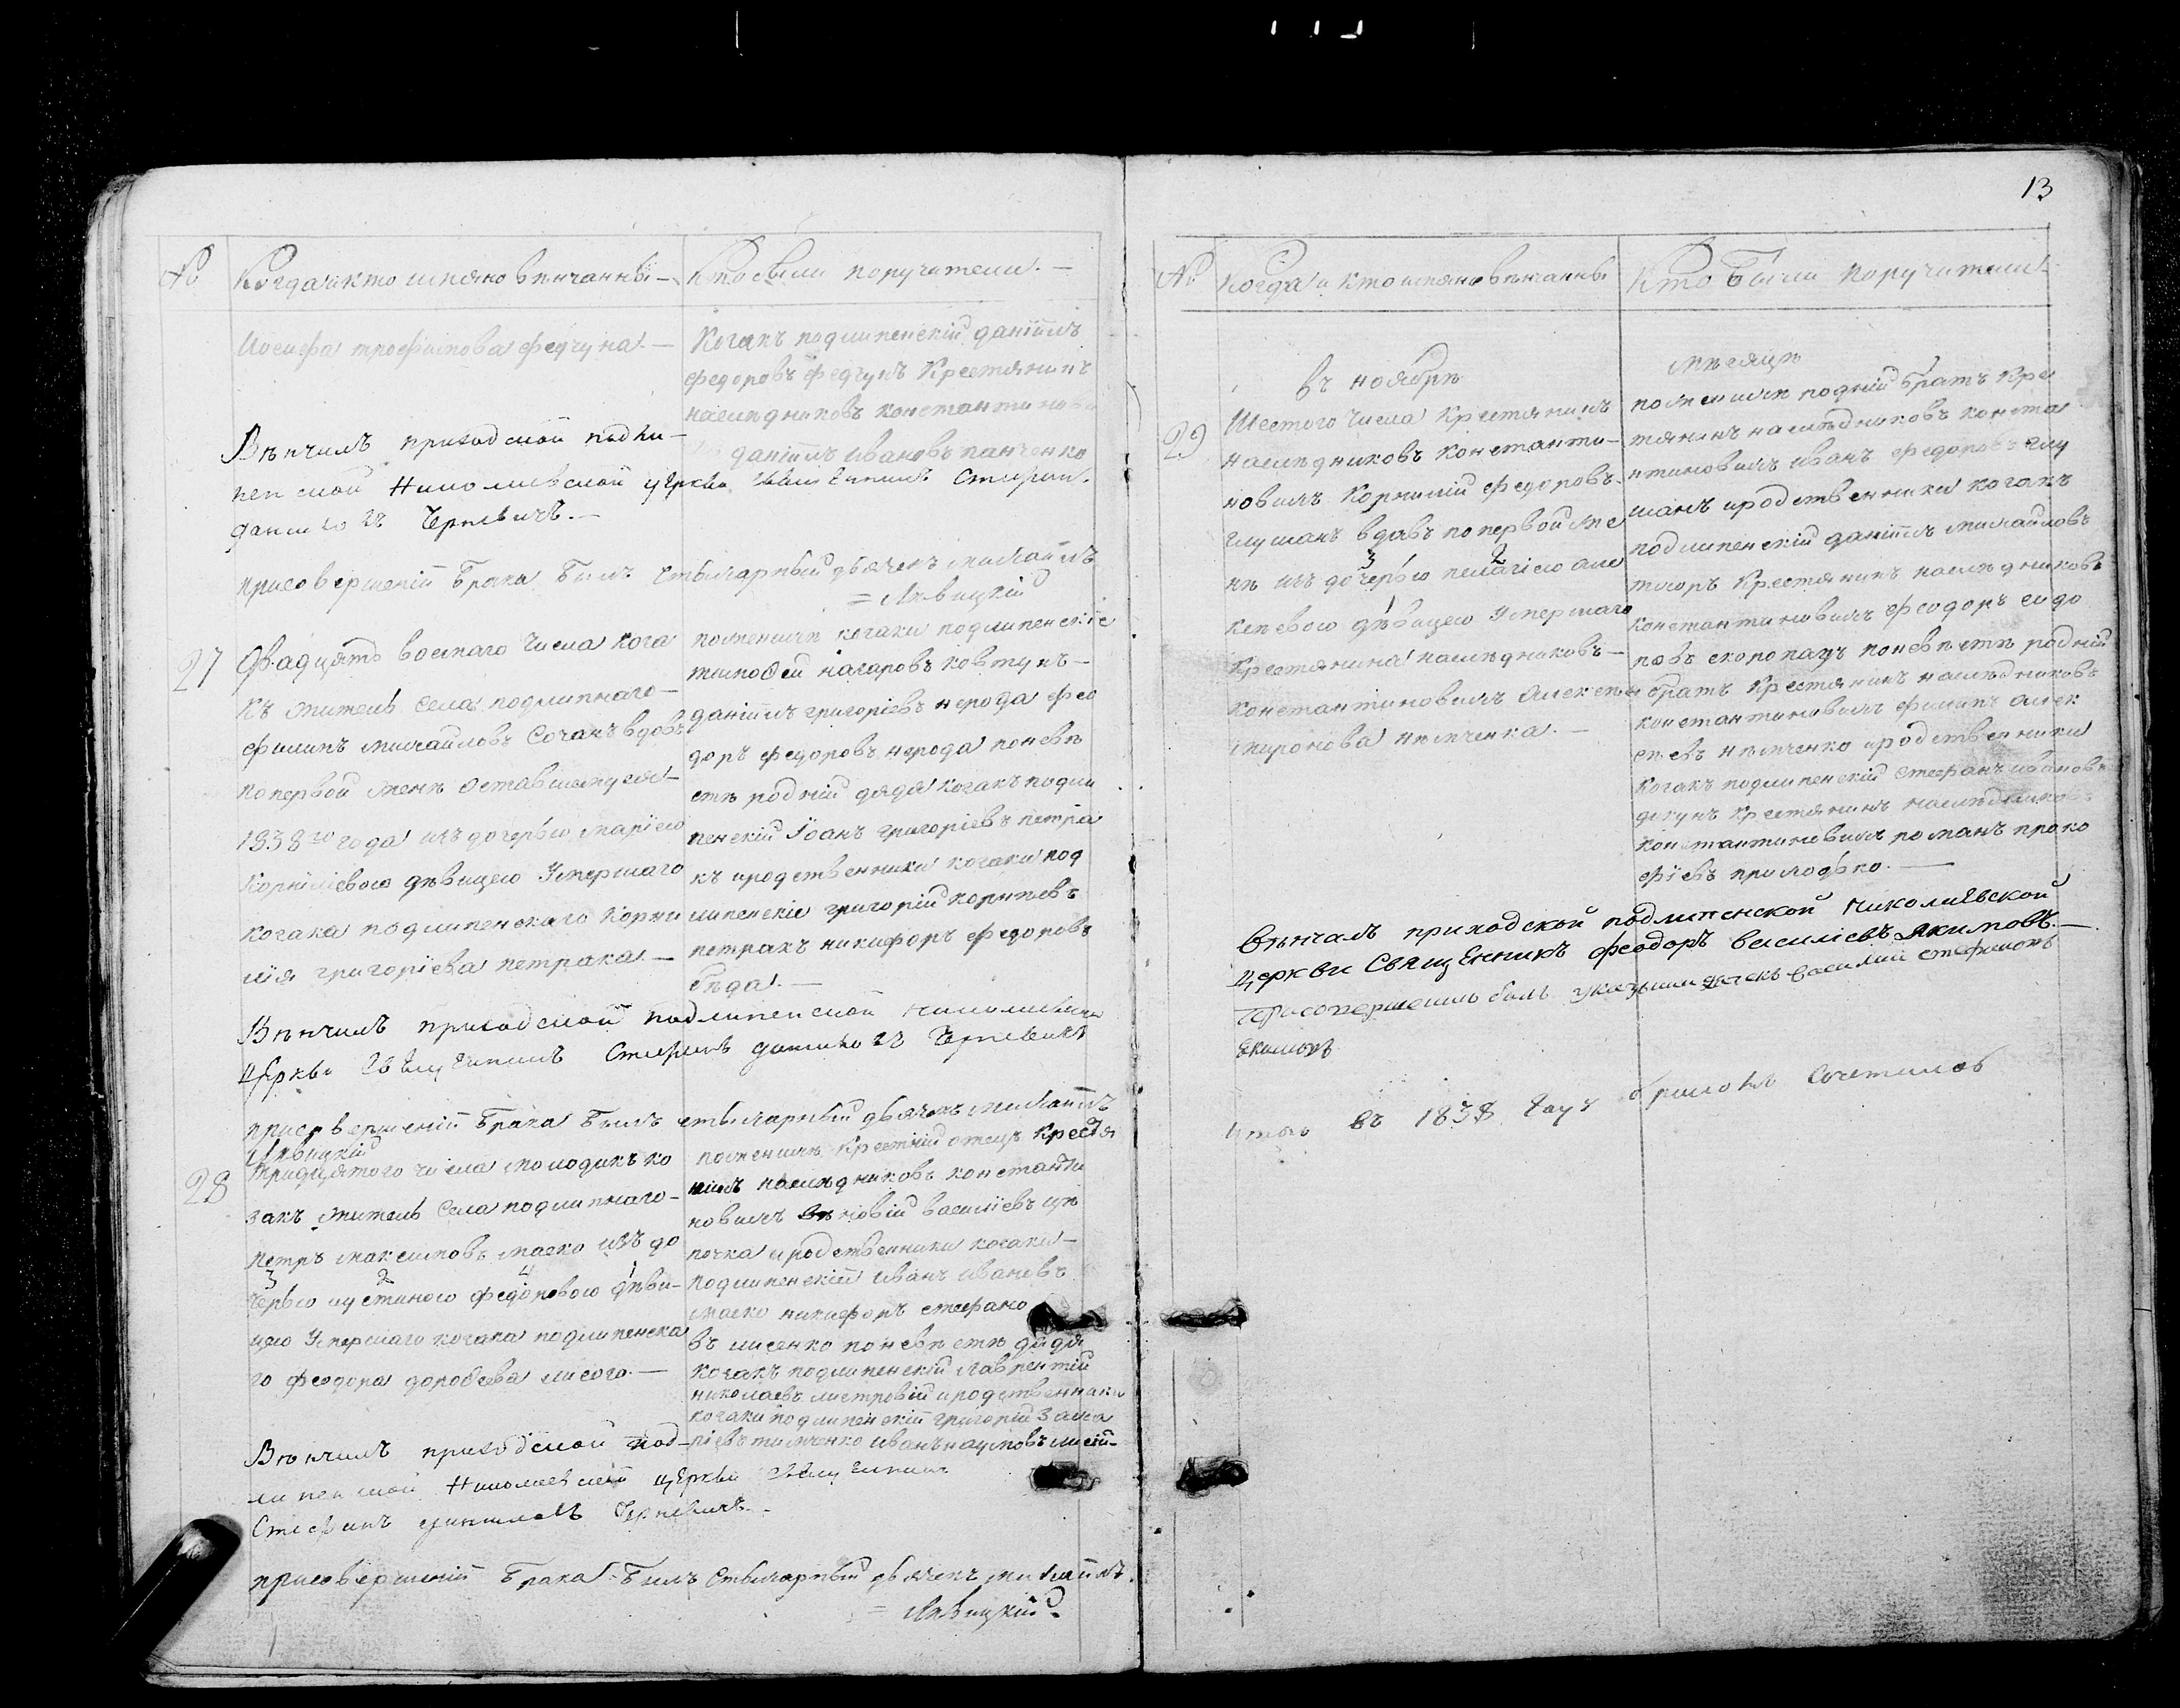 13
№ Когда и кто имяно венчанны — Кто были поручители. —
Иосифа трофимова федчуна. —
Венчалъ приходской подли-
пенской Николаевской церкви Священникъ Стефанъ
данилов Черневичъ. —
Козакъ подлипенский даніилъ
федоровъ федчунъ Крестянинъ
наследниковъ константинова
даніилъ Ивановъ панченко
присовершеніи брака былъ стыхарный дьячекъ михаилъ
= Левицкій
27
Двадцять восмаго числа коза
къ житель села подлипнаго —
филипъ михаиловъ Сочакъ вдовъ
по первой жене оставшемуся —
1838го года изъ дочерью маріею
Корніліевою девицею умершаго
козака подлипенскаго Корни
лія григоріева петрака. —
по женихе козаки подлипенскіе
тимофей назаровъ ковтунъ —
даніилъ григоріевъ нерода фео
доръ федоровъ нерода по неве
сте родній дядя козакъ подли
пенскій Іоанъ григоріевъ петра
къ иродственники козаки под
липенскіе григорій корніевъ
петракъ никифоръ федоровъ
беда. —
Венчалъ приходской подлипенской Николаевской
церкви Священникъ Стефанъ данилов Черневичъ
присовершеніи брака былъ стыхарный дьячекъ михаилъ
Левицкій
28
Тридцятого числа молодикъ ко
закъ житель села подлипнаго —
петръ максимовъ маско изъ до
3 2 4 1
черью иустиною федоровою деви-
цею умершаго козака подлипенска
го феодора дорофеева лисого. —
по женихе крестній отецъ кресття
нинъ наследниковъ константи
новихъ зеновій василіевъ це
почка иродственники козаки —
подлипенскій Иванъ Ивановъ
маско никифоръ стефано
въ лисенко по невесте дядя
козакъ подлипенскій лаврентій
николаевъ листровій иродственники
козаки подлипенскій григорій заха
ріевъ тимченко Иванъ наумовъ лисій —
Венчалъ приходской под-
липенской Николаевской церкви Священникъ
Стефанъ данилов Черневичъ. —
присовершеніи брака былъ стыхарный дьячекъ михаилъ.
= Левицкій.
№ Когда и кто имяно венчанны Кто были поручители —
въ ноябре месяце
29
Шестого числа Крестянинъ
наследниковъ константи-
новихъ Корнилій федоровъ
глушакъ вдовъ по первой же
3 2
не изъ дочерью пелагіею але
1
ксеевою девицею умершаго
Крестянина наследниковъ —
константиновихъ Алексея
миронова немченка. —
по женихе родній братъ кре
тянинъ наследниковъ конста
нтиновихъ иванъ федоровъ глу
шакъ иродственники козакъ
подлипенскій даніилъ михайловъ
Крестянинъ наследниковъ
константиновихъ феодоръ сидо
ровъ скоропадъ по невесте родній
братъ Крестянинъ наследниковъ
константиновихъ филипъ алек
сеевъ немченко иродственники
козакъ подлипенскій стефанъ ивановъ
Крестянинъ наследниковъ
константиновихъ романъ проко
фіевъ приходько. —
Венчалъ приходской подлипенской Николаевской
церкви Священникъ феодоръ василіевъ Якимовъ. —
При совершеніи былъ указный дьячекъ василий стефановъ
Екимовъ
Итого въ 1838 году браковъ Сочетаноъ